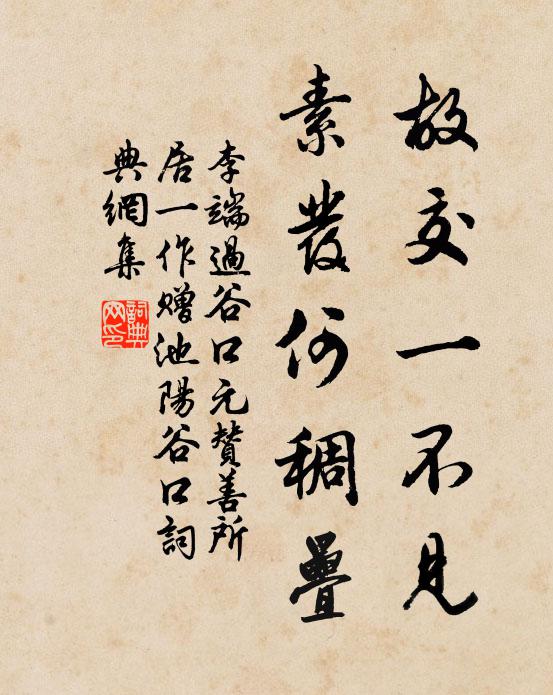 故交一不見
素發何稠疊
李端過谷口元贊善所
居一作贈池陽谷口詞
典網集
詞典網印